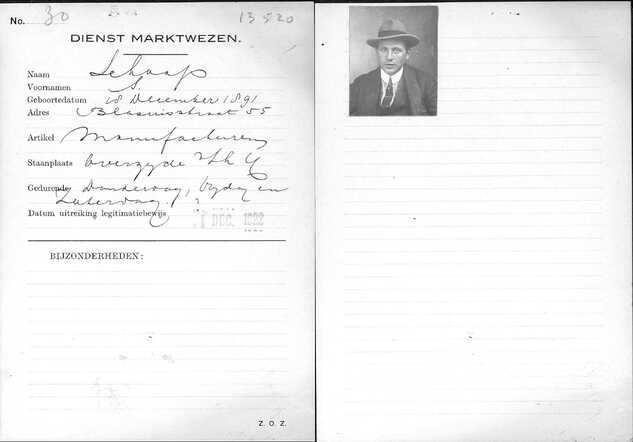 No. 30 13520
DIENST MARKTWEZEN.
Naam Schaap
Voornamen S.
Geboortedatum 18 December 1891
Adres Blasiusstraat 55
Artikel Manufacturen
Staanplaats Overzyde
Gedurende Donderdag, Vrydag en
Zaterdag.
Datum uitreiking legitimatiebewijs 1 DEC. 1922
BIJZONDERHEDEN:
Z. O. Z.